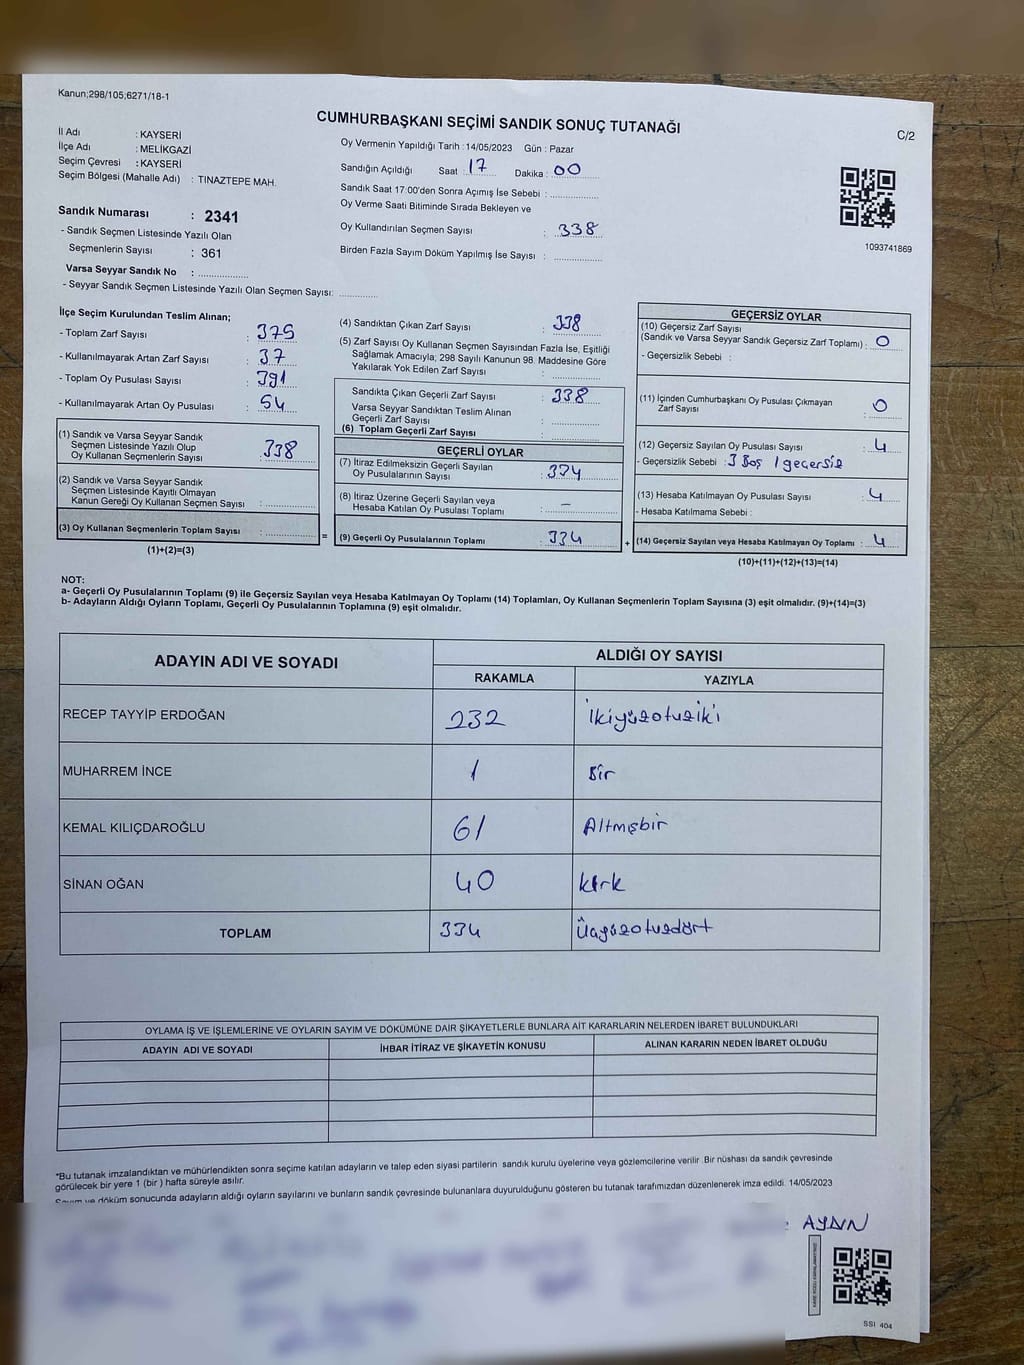 Kanun;298/105;6271/18-1
CUMHURBAŞKANI SEÇİMİ SANDIK SONUÇ TUTANAĞI
C/2
İl Adı : KAYSERİ
İlçe Adı : MELİKGAZİ
Seçim Çevresi : KAYSERİ
Seçim Bölgesi (Mahalle Adı) : TINAZTEPE MAH.
Sandık Numarası : 2341
- Sandık Seçmen Listesinde Yazılı Olan
Seçmenlerin Sayısı : 361
Varsa Seyyar Sandık No : ..............
- Seyyar Sandık Seçmen Listesinde Yazılı Olan Seçmen Sayısı: ..............
Oy Vermenin Yapıldığı Tarih : 14/05/2023 Gün : Pazar
Sandığın Açıldığı Saat : 17 Dakika : 00
Sandık Saat 17:00'den Sonra Açımış İse Sebebi : ..............
Oy Verme Saati Bitiminde Sırada Bekleyen ve
Oy Kullandırılan Seçmen Sayısı : 338
Birden Fazla Sayım Döküm Yapılmış İse Sayısı : ..............
1093741869
İlçe Seçim Kurulundan Teslim Alınan;
- Toplam Zarf Sayısı : 375
- Kullanılmayarak Artan Zarf Sayısı : 37
- Toplam Oy Pusulası Sayısı : 391
- Kullanılmayarak Artan Oy Pusulası : 54
(1) Sandık ve Varsa Seyyar Sandık
Seçmen Listesinde Yazılı Olup
Oy Kullanan Seçmenlerin Sayısı : 338
(2) Sandık ve Varsa Seyyar Sandık
Seçmen Listesinde Kayıtlı Olmayan
Kanun Gereği Oy Kullanan Seçmen Sayısı : ..............
(3) Oy Kullanan Seçmenlerin Toplam Sayısı : .............. =
(1)+(2)=(3)
(4) Sandıktan Çıkan Zarf Sayısı : 338
(5) Zarf Sayısı Oy Kullanan Seçmen Sayısından Fazla İse, Eşitliği
Sağlamak Amacıyla; 298 Sayılı Kanunun 98. Maddesine Göre
Yakılarak Yok Edilen Zarf Sayısı : ..............
Sandıkta Çıkan Geçerli Zarf Sayısı : 338
Varsa Seyyar Sandıktan Teslim Alınan
Geçerli Zarf Sayısı : ..............
(6) Toplam Geçerli Zarf Sayısı : ..............
GEÇERLİ OYLAR
(7) İtiraz Edilmeksizin Geçerli Sayılan
Oy Pusulalarının Sayısı : 334
(8) İtiraz Üzerine Geçerli Sayılan veya
Hesaba Katılan Oy Pusulası Toplamı : –
(9) Geçerli Oy Pusulalarının Toplamı : 334 +
GEÇERSİZ OYLAR
(10) Geçersiz Zarf Sayısı
(Sandık ve Varsa Seyyar Sandık Geçersiz Zarf Toplamı) : 0
- Geçersizlik Sebebi :
(11) İçinden Cumhurbaşkanı Oy Pusulası Çıkmayan
Zarf Sayısı : 0
(12) Geçersiz Sayılan Oy Pusulası Sayısı : 4
- Geçersizlik Sebebi : 3 Boş 1 geçersiz
(13) Hesaba Katılmayan Oy Pusulası Sayısı : 4
- Hesaba Katılmama Sebebi :
(14) Geçersiz Sayılan veya Hesaba Katılmayan Oy Toplamı : 4
(10)+(11)+(12)+(13)=(14)
NOT:
a- Geçerli Oy Pusulalarının Toplamı (9) ile Geçersiz Sayılan veya Hesaba Katılmayan Oy Toplamı (14) Toplamları, Oy Kullanan Seçmenlerin Toplam Sayısına (3) eşit olmalıdır. (9)+(14)=(3)
b- Adayların Aldığı Oyların Toplamı, Geçerli Oy Pusulalarının Toplamına (9) eşit olmalıdır.
ADAYIN ADI VE SOYADI ALDIĞI OY SAYISI
RAKAMLA YAZIYLA
RECEP TAYYİP ERDOĞAN 232 İkiyüzotuziki
MUHARREM İNCE 1 Bir
KEMAL KILIÇDAROĞLU 61 Altmışbir
SİNAN OĞAN 40 kırk
TOPLAM 334 Üçyüzotuzdört
OYLAMA İŞ VE İŞLEMLERİNE VE OYLARIN SAYIM VE DÖKÜMÜNE DAİR ŞİKAYETLERLE BUNLARA AİT KARARLARIN NELERDEN İBARET BULUNDUKLARI
ADAYIN ADI VE SOYADI İHBAR İTİRAZ VE ŞİKAYETİN KONUSU ALINAN KARARIN NEDEN İBARET OLDUĞU
*Bu tutanak imzalandıktan ve mühürlendikten sonra seçime katılan adayların ve talep eden siyasi partilerin sandık kurulu üyelerine veya gözlemcilerine verilir .Bir nüshası da sandık çevresinde
görülecek bir yere 1 (bir ) hafta süreyle asılır.
Sayım ve döküm sonucunda adayların aldığı oyların sayılarını ve bunların sandık çevresinde bulunanlara duyurulduğunu gösteren bu tutanak tarafımızdan düzenlenerek imza edildi. 14/05/2023
AYDIN
SSI 404